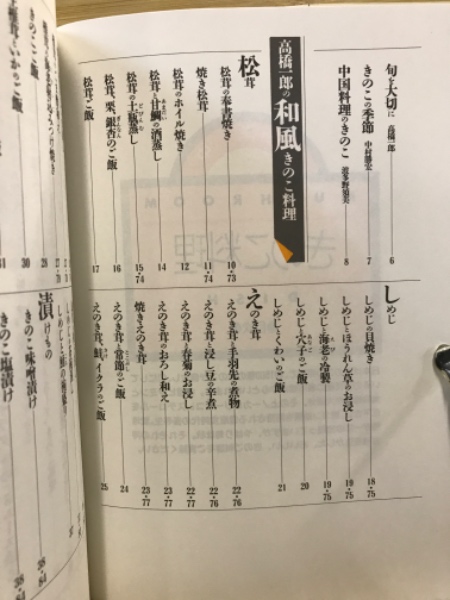 旬を大切に 高橋一郎 6
きのこの季節 中村勝宏 7
中国料理のきのこ 波多野須美 8
高橋一郎の和風きのこ料理
松茸
松茸の奉書焼き 10・73
焼き松茸 11・74
松茸のホイル焼き 12
松茸と甘鯛の酒蒸し 14
松茸の土瓶蒸し 15・74
松茸、栗、銀杏のご飯 16
松茸ご飯 17
しめじ
しめじの貝焼き 18・75
しめじとほうれん草のお浸し 19・75
しめじと海老の冷製 19・75
しめじと穴子のご飯 20
しめじとくわいのご飯 21
えのき茸
えのき茸と手羽先の煮物 22・76
えのき茸と浸し豆の辛煮 22・76
えのき茸と春菊のお浸し 22・77
えのき茸のおろし和え 23・77
焼きえのき茸 23・77
えのき茸と常節のご飯 24
えのき茸、鮭、イクラのご飯 25
きのこご飯 30
いかのご飯 31
漬けもの
きのこ味噌漬け 38・84
きのこ塩漬け 38・84